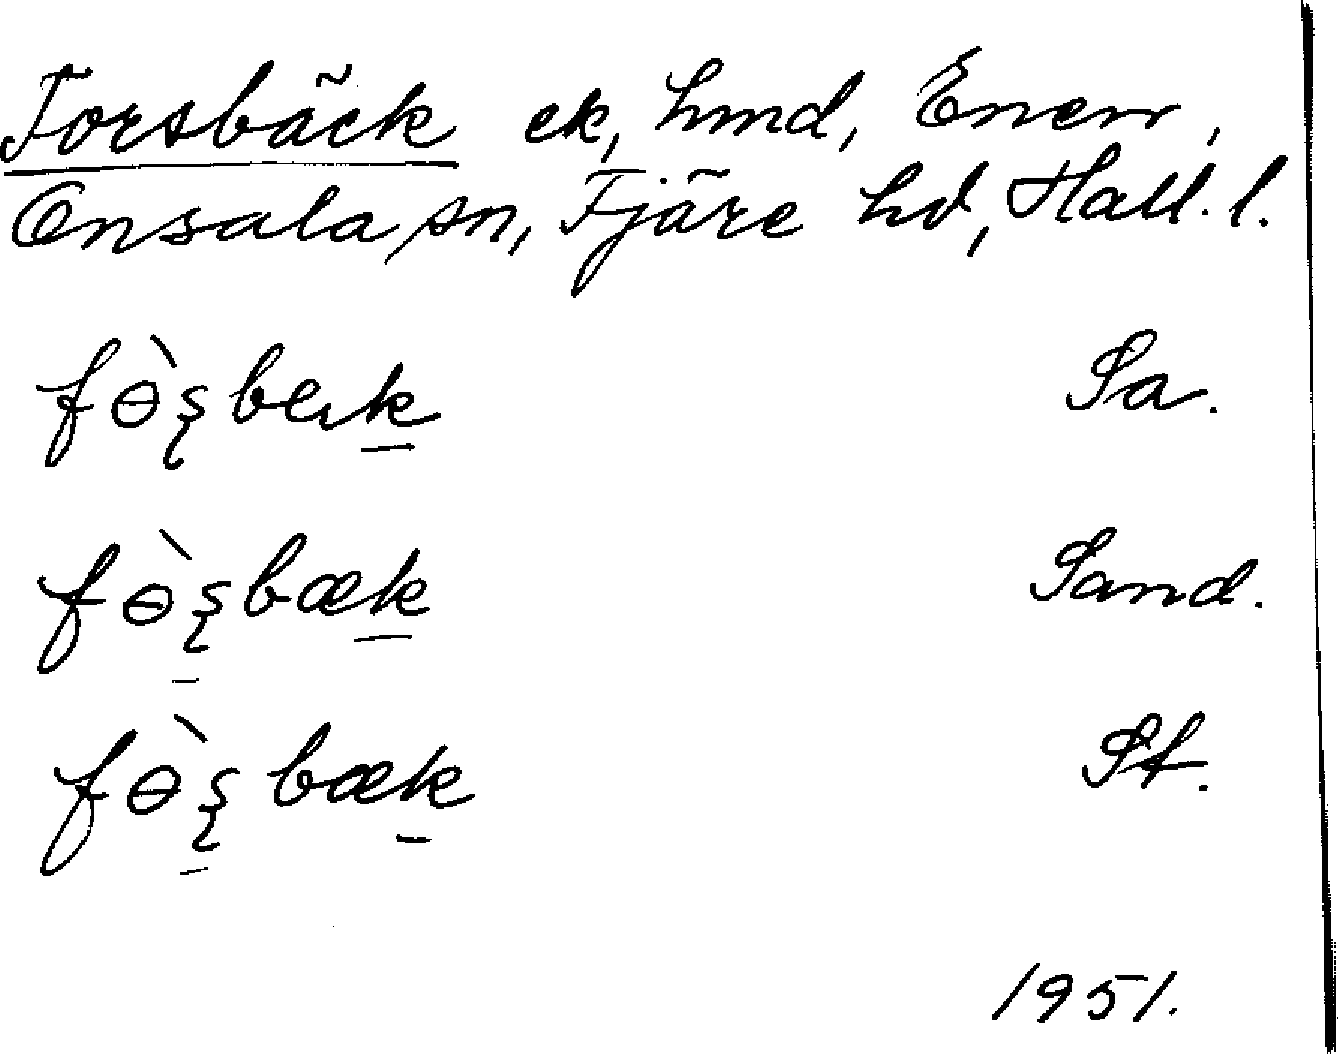 Forsbäck ek, hmd, Enen,
Onsala sn, Fjäre hd, Hall. l.
fɵ̀ʂbeɩk Sa.
fɵ̀ʂbæk Sand.
fɵ̀ʂbæk St.
1951.